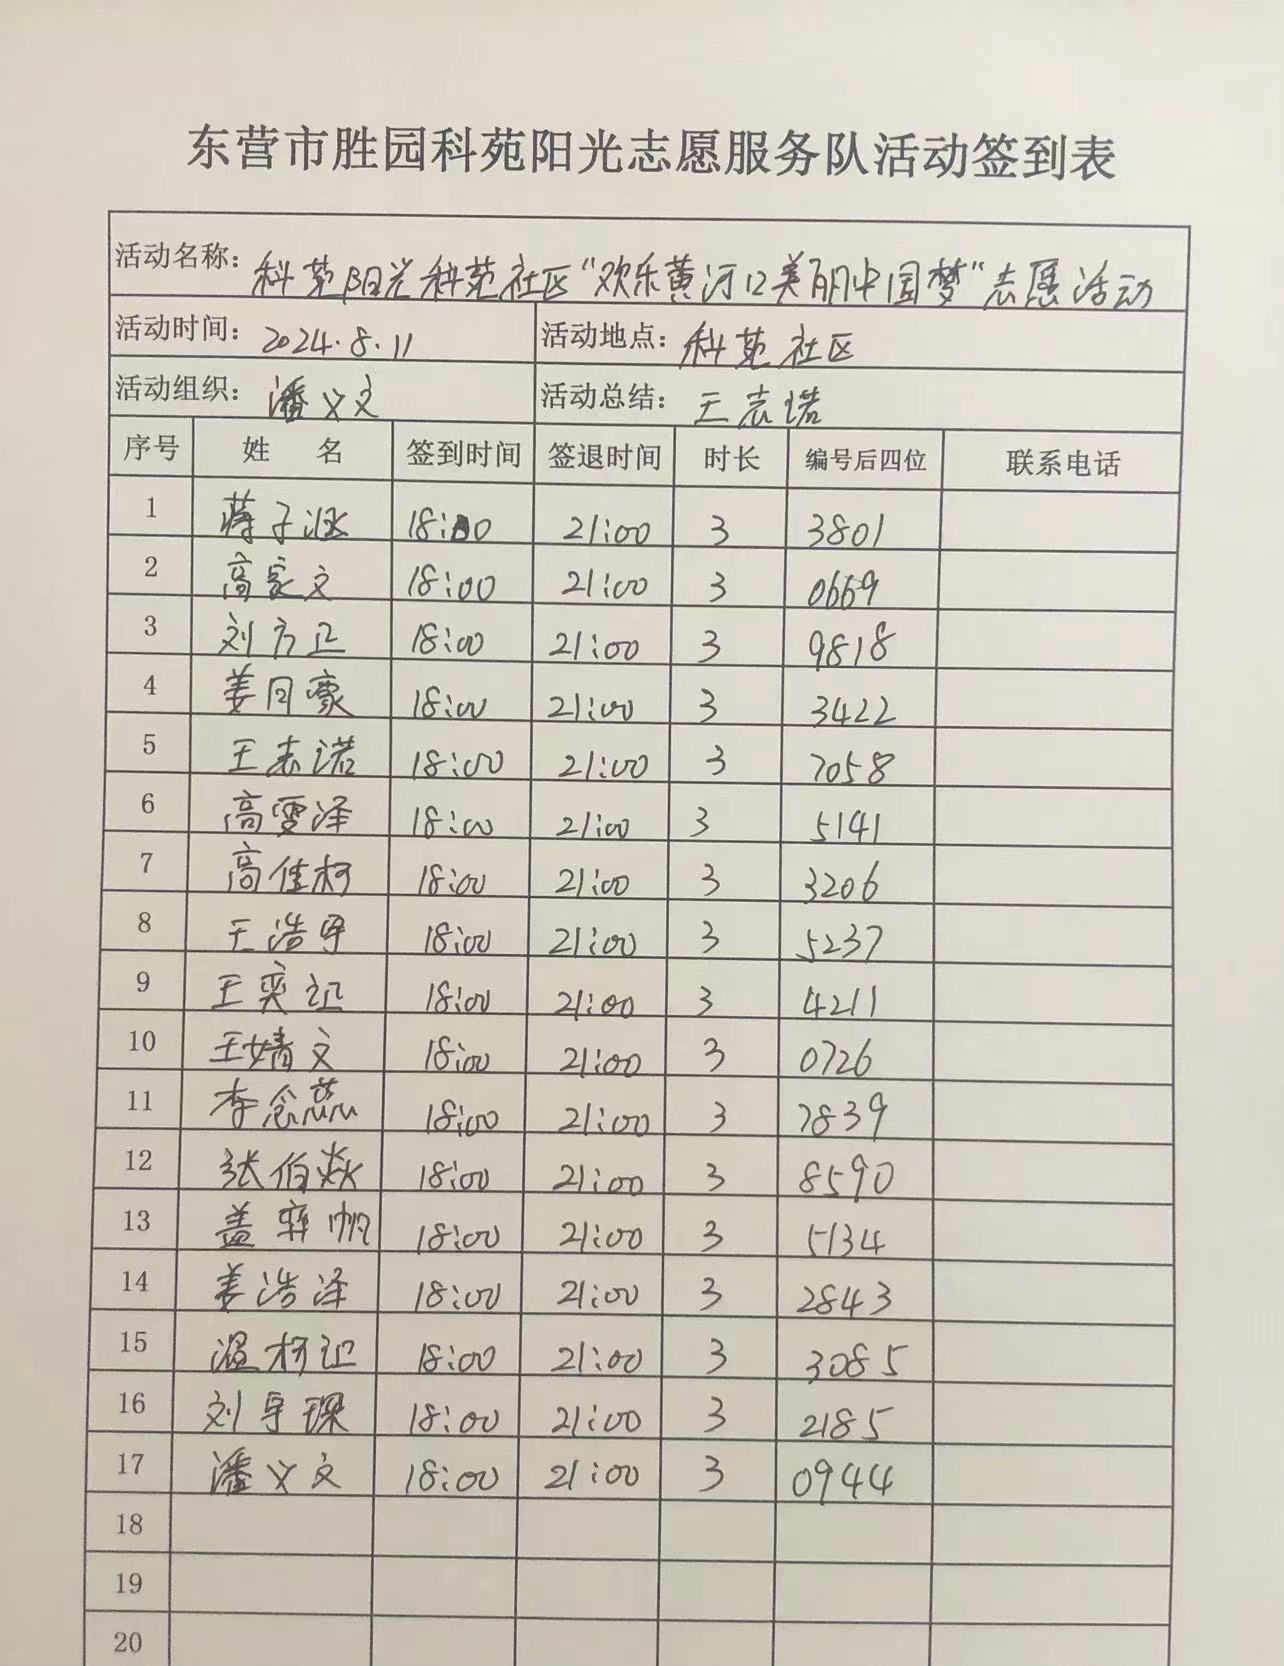 东营市胜园科苑阳光志愿服务队活动签到表
活动名称：科苑阳光科苑社区“欢乐黄河口美丽中国梦”志愿活动
活动时间：2024.8.11 活动地点：科苑社区
活动组织：潘义文 活动总结：王志诺
序号 姓名 签到时间 签退时间 时长 编号后四位 联系电话
1 蒋子涵 18:00 21:00 3 3801
2 高家文 18:00 21:00 3 0669
3 刘方正 18:00 21:00 3 9818
4 姜同豪 18:00 21:00 3 3422
5 王志诺 18:00 21:00 3 7058
6 高雯泽 18:00 21:00 3 5141
7 高佳柯 18:00 21:00 3 3206
8 王浩宇 18:00 21:00 3 5237
9 王奕 18:00 21:00 3 4211
10 王婧文 18:00 21:00 3 0726
11 李念蕊 18:00 21:00 3 7839
12 张伯焱 18:00 21:00 3 8590
13 盖奕帆 18:00 21:00 3 5134
14 姜浩泽 18:00 21:00 3 2843
15 温柯 18:00 21:00 3 3085
16 刘宇琛 18:00 21:00 3 2185
17 潘义文 18:00 21:00 3 0944
18
19
20